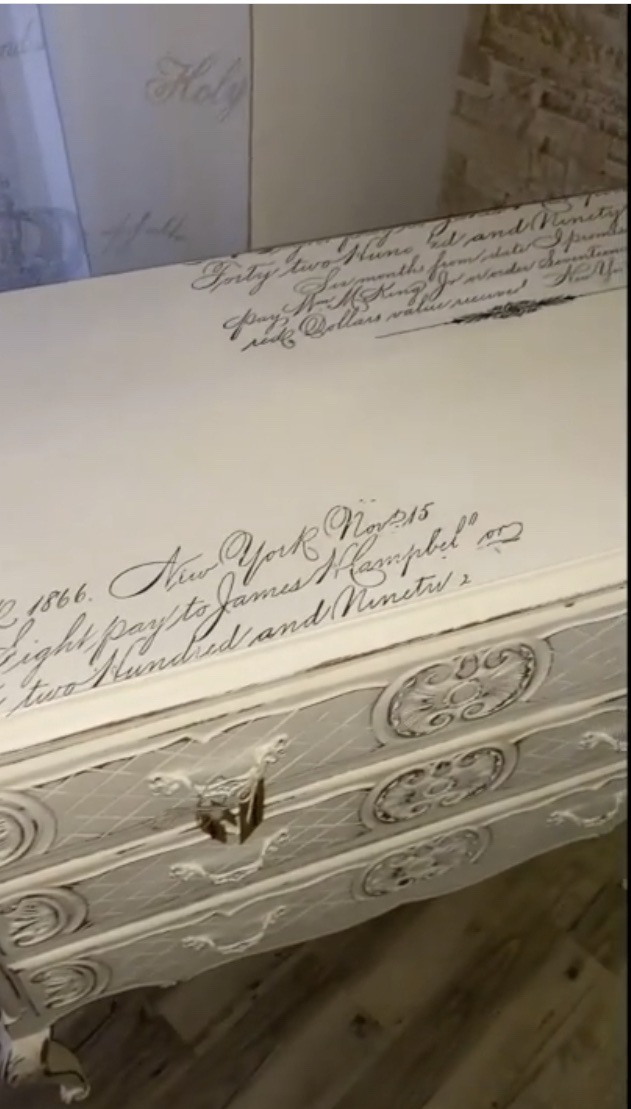 Holy
Forty two Hund ed and Ninety
Six months from date I promise
pay Wm McKing Jr or order Seventeen
red Dollars value received New Yo
1866. New York Nov 15
Eight pay to James H Campbell or
two Hundred and Ninety